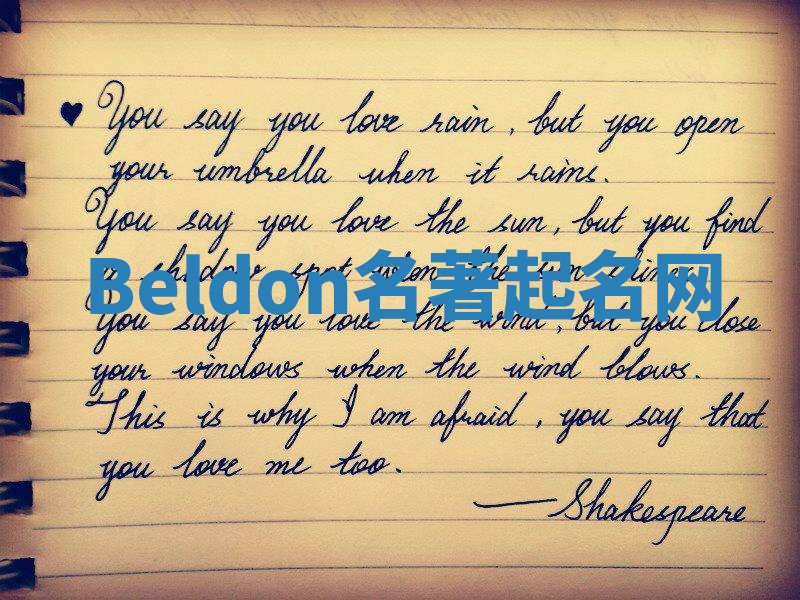 ♥ You say you love rain, but you open
your umbrella when it rains.
You say you love the sun, but you find
a shadow spot when the sun shines.
Beldon名著起名网
You say you love the wind, but you close
your windows when the wind blows.
This is why I am afraid, you say that
you love me too.
— Shakespeare